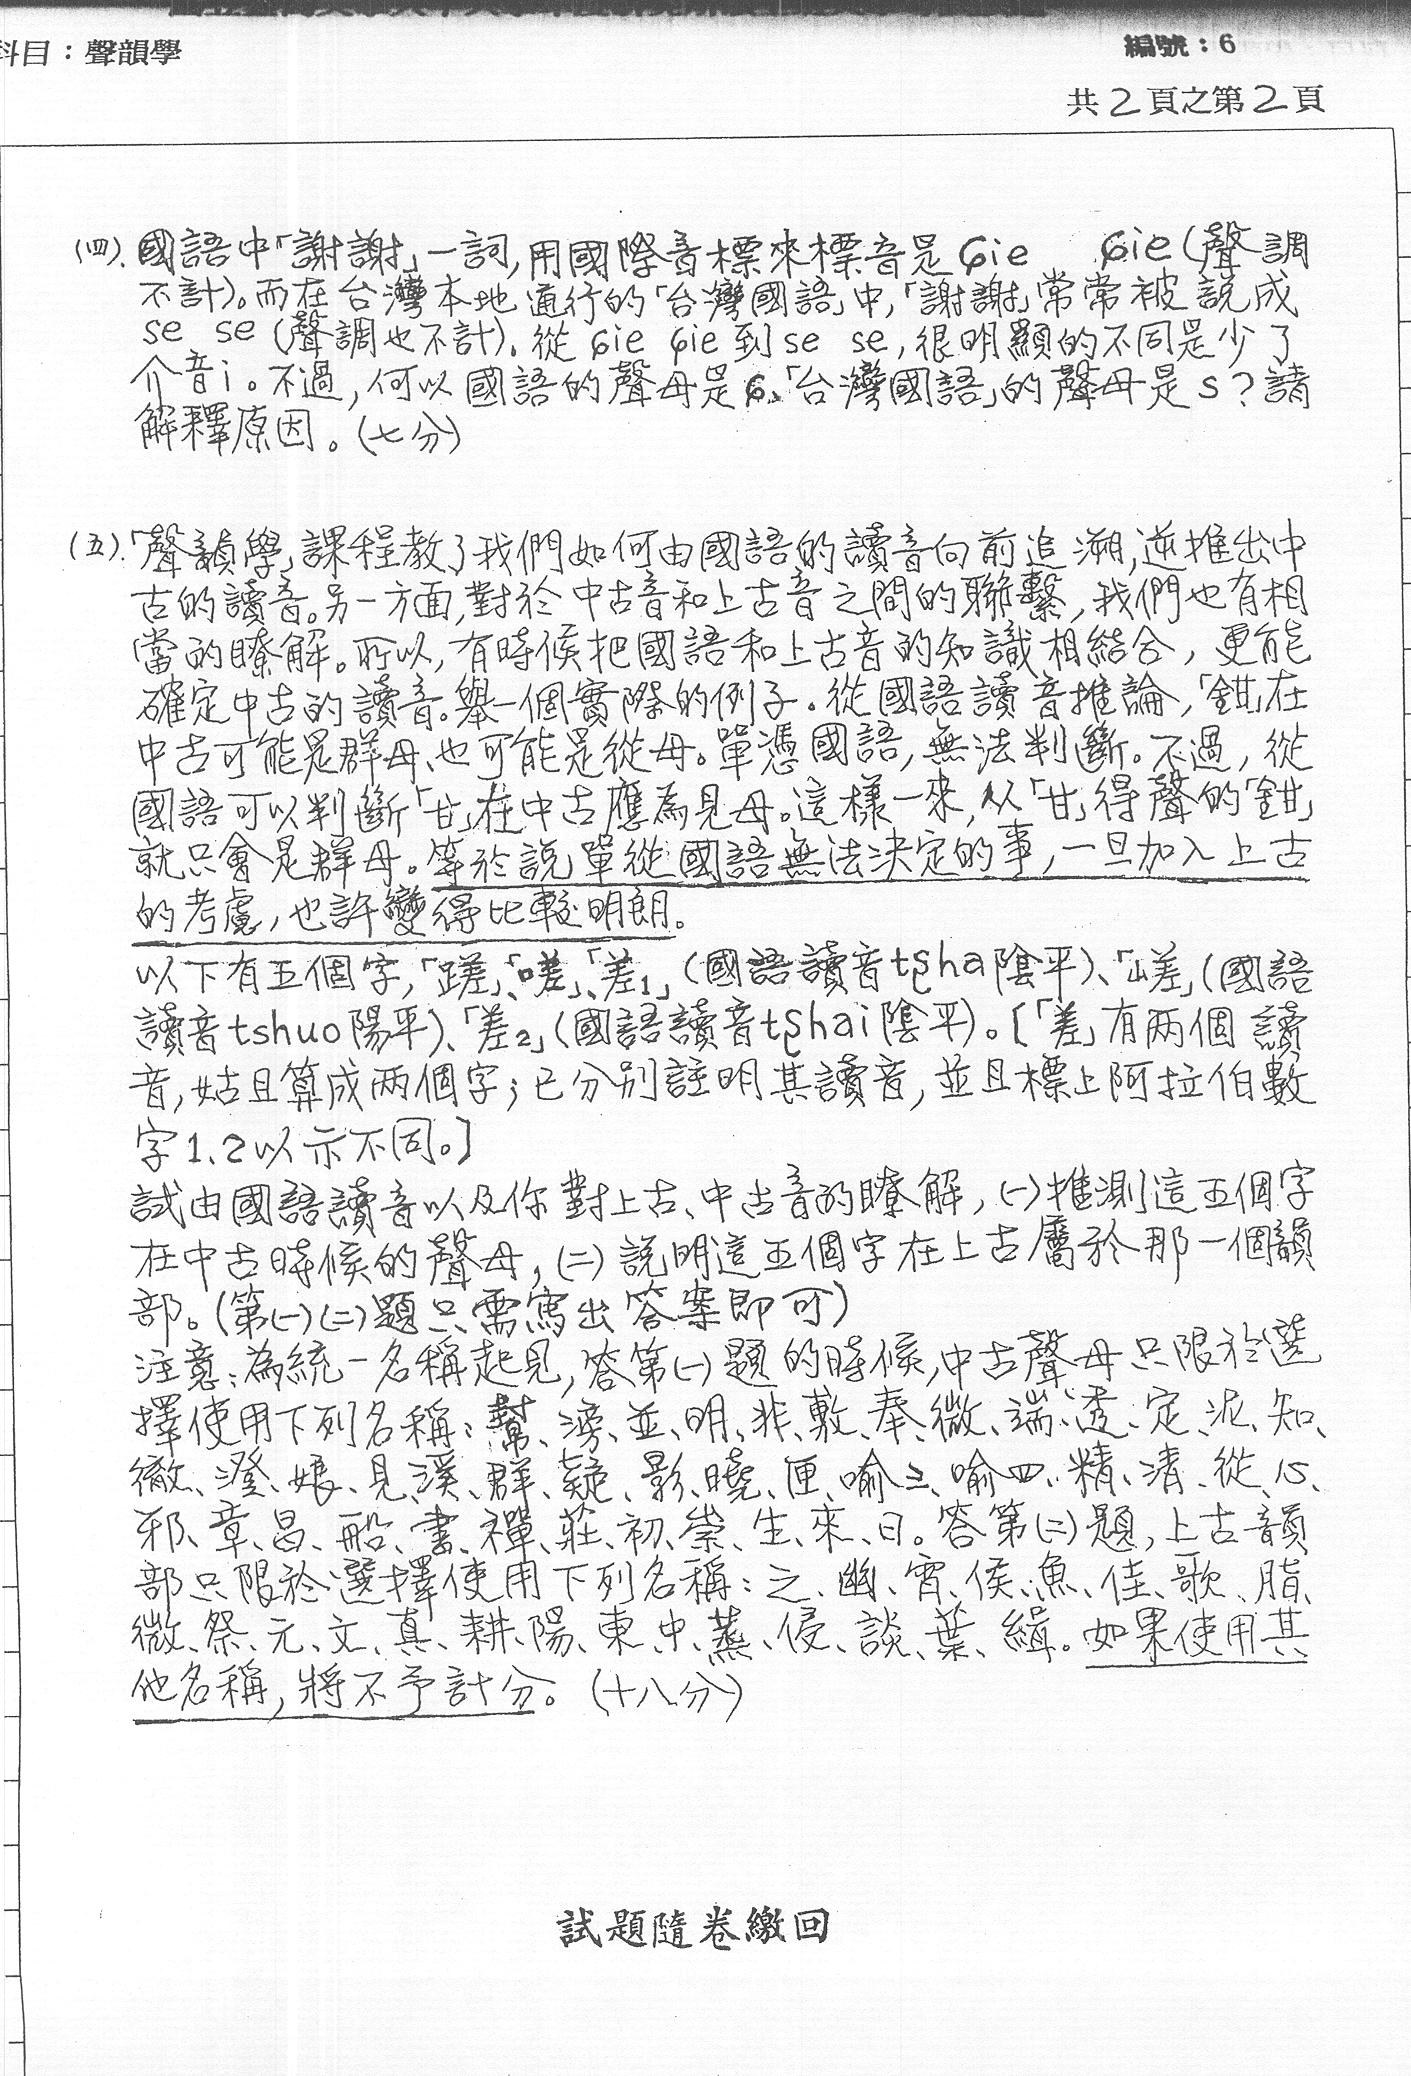 科目：聲韻學
編號：6
共2頁之第2頁
(四).國語中「謝謝」一詞,用國際音標來標音是ɕie ɕie(聲調
不計)。而在台灣本地通行的「台灣國語」中,「謝謝」常常被說成
se se(聲調也不計)。從ɕie ɕie到se se,很明顯的不同是少了
介音i。不過,何以國語的聲母是ɕ、「台灣國語」的聲母是s?請
解釋原因。(七分)
(五).「聲韻學」課程教了我們如何由國語的讀音向前追溯,逆推出中
古的讀音。另一方面,對於中古音和上古音之間的聯繫,我們也有相
當的瞭解。所以,有時候把國語和上古音的知識相結合,更能
確定中古的讀音。舉一個實際的例子。從國語讀音推論,「鉗」在
中古可能是群母、也可能是從母。單憑國語,無法判斷。不過,從
國語可以判斷「甘」在中古應為見母。這樣一來,从「甘」得聲的「鉗」
就只會是群母。等於說單從國語無法決定的事,一旦加入上古
的考慮,也許變得比較明朗。
以下有五個字,「蹉」、「嗟」、「差1」(國語讀音tʂha陰平)、「嵯」(國語
讀音tshuo陽平)、「差2」(國語讀音tʂhai陰平)。[「差」有兩個讀
音,姑且算成兩個字;已分別註明其讀音,並且標上阿拉伯數
字1、2以示不同。]
試由國語讀音以及你對上古、中古音的瞭解,(一)推測這五個字
在中古時候的聲母,(二)說明這五個字在上古屬於那一個韻
部。(第(一)(二)題只需寫出答案即可)
注意:為統一名稱起見,答第(一)題的時候,中古聲母只限於選
擇使用下列名稱:幫、滂、並、明、非、敷、奉、微、端、透、定、泥、知、
徹、澄、娘、見、溪、群、疑、影、曉、匣、喻三、喻四、精、清、從、心、
邪、章、昌、船、書、禪、莊、初、崇、生、來、日。答第(二)題,上古韻
部只限於選擇使用下列名稱:之、幽、宵、侯、魚、佳、歌、脂、
微、祭、元、文、真、耕、陽、東、中、蒸、侵、談、葉、緝。如果使用其
他名稱,將不予計分。(十八分)
試題隨卷繳回